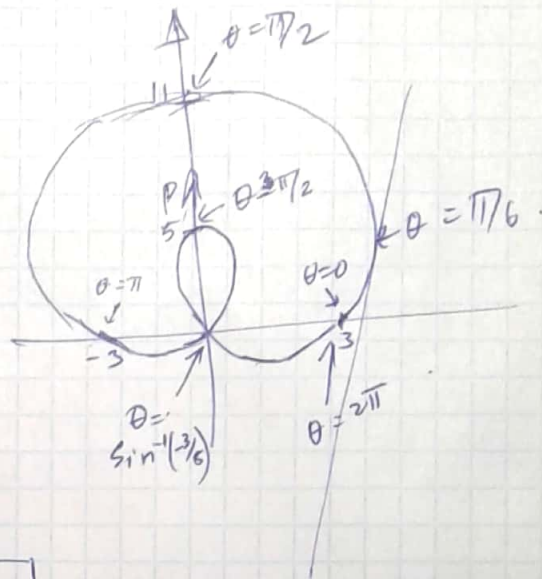 θ = π/2
11
P
θ 3π/2
5
θ = π/6
θ=π
θ=0
-3
3
θ=
sin⁻¹(-3/6)
θ = 2π